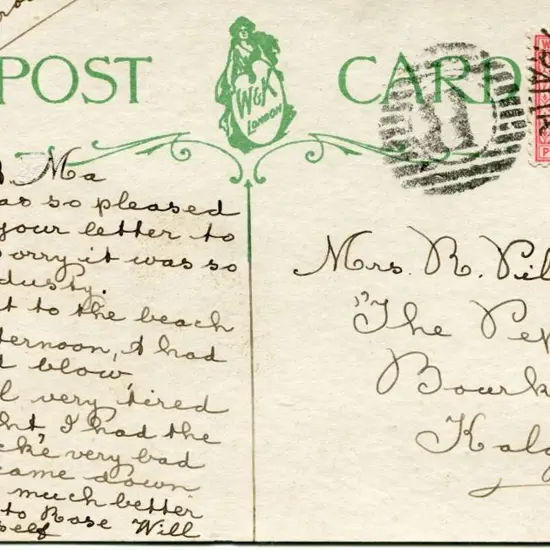 POST CARD
W&K
LONDON
Ma
as so pleased
your letter to
orry it was so
dusty.
t to the beach
ternoon, I had
d blow
l very tired
ht I had the
very bad
came down
much better
to Rose Will
self
Mrs. R. Pil
"The Pep
Bourk
Kalg